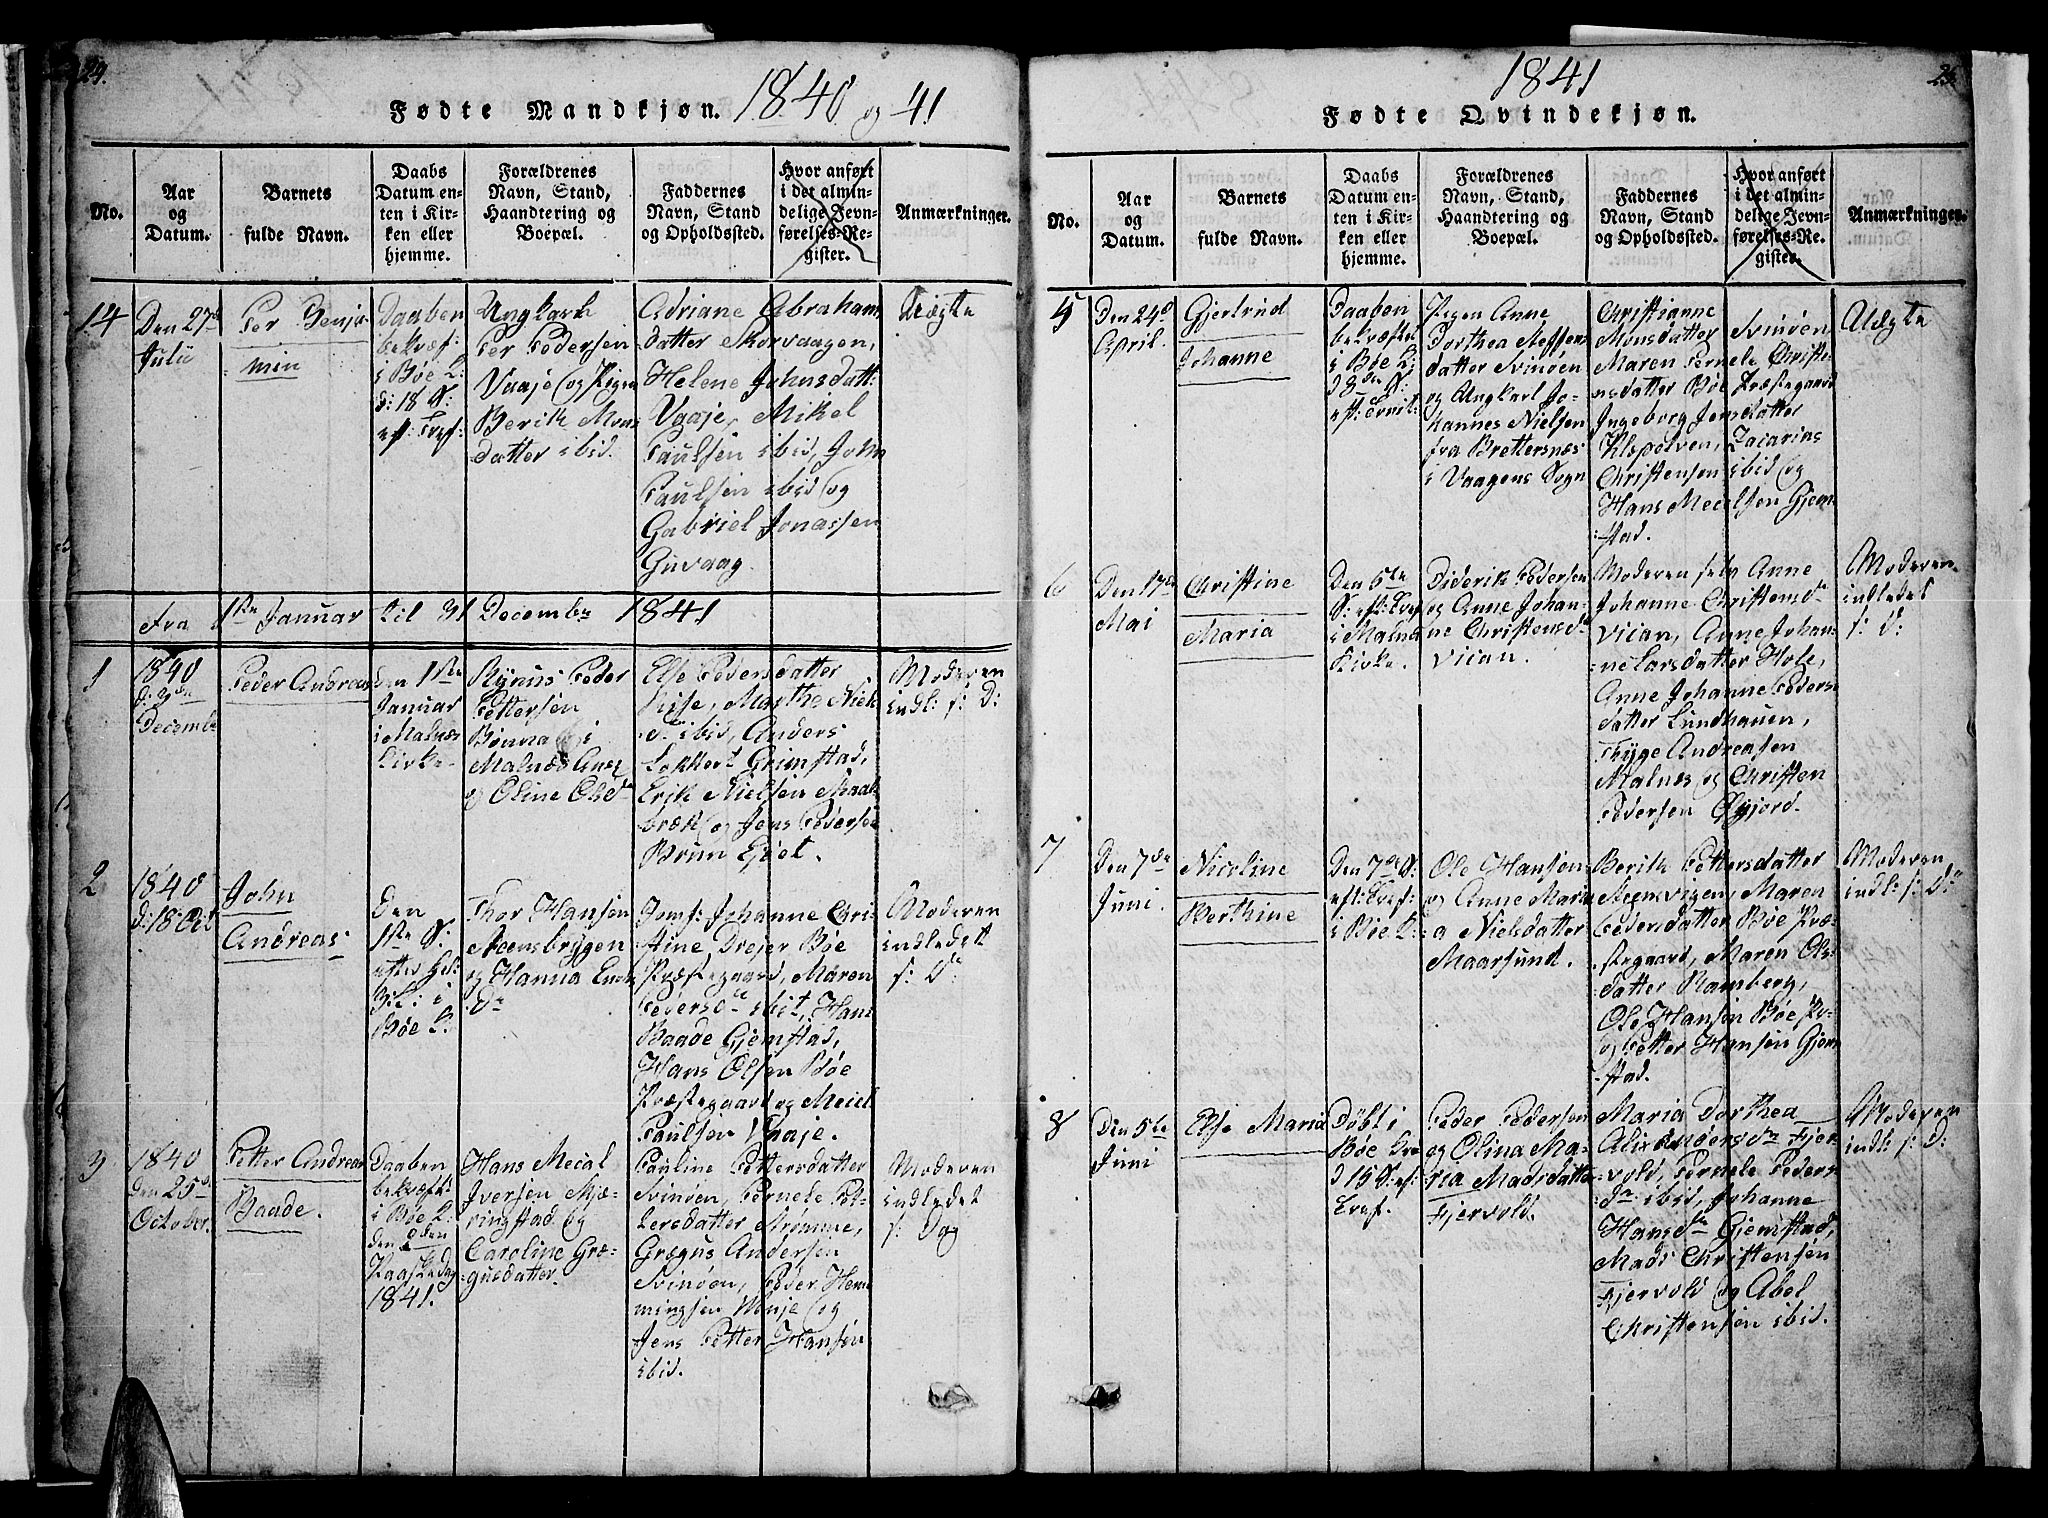 24.
Fødte Mandkjøn. 1840 og 41
No.
Aar
og
Datum.
Barnets
fulde Navn.
Daabs
Datum en-
ten i Kir-
ken eller
hjemme.
Forældrenes
Navn, Stand,
Haandtering og
Boepæl.
Faddernes
Navn, Stand
og Opholdssted.
Hvor anført
i det almin-
delige Jevn-
førelses-Re-
gister.
Anmærkninger.
14
Den 27de
Julii
Per Benja-
min
Daaben
bekræf:
i Bøe K:
d: 18 S:
eft: Tref:
Ungkarl
Per Pedersen
Vaaje og Pigen
Berit Mons
datter ibid.
Adriane Abrahams
datter Skorvaagen,
Helene Johnsdatt:
Vaaje, Mikel
Paulsen ibid, John
Paulsen ibid og
Gabriel Jonassen
Guvaag.
Uægte
Fra 1ste Januar til 31 December 1841
1
1840
d: 3de
Decembr
Peder Andreas
den 1ste
Januar
i Malnes
Kirke
Peder
Pettersen
i
Malnes
og Oline Olsdr
Else Pedersdatter
Marthe Niels
d: ibid, Anders
Lokkert Grimstad,
Erik Nielsen Maar-
bræk og Jens Pedersen
Brun
Moderen
indl: s: D:
2
1840
d: 18 Oct
John
Andreas
Den
1ste S:
efter Hel:
3 K: i
Bøe K:
Thor Hansen
Steensbrygen
og Hanna
Dr
Jomf: Johanne Chri-
stine Dreier Bøe
Præstegaard, Maren
Pedersdr ibit, Hans
Baade Gjemstad,
Hans Olsen Bøe
Præstegaard og Meiel
Paulsen Vaaje.
Moderen
indledet
s: D:
3
1840
den 25de
October.
Petter Andreas
Baade.
Daaben
bekræft:
i Bøe K:
den 2den
Paaskedag
1841.
Hans Mecal
Iversen Skjæ-
ringstad og
Caroline Græ-
gusdatter.
Pauline Pettersdatter
Svinøen, Pernele Pet-
tersdatter Strømme,
Grægus Andersen
Svinøen, Peder Hem-
mingsen Vaaje og
Jens Petter Hansen
ibid.
Moderen
indledet
s: Dag
25.
1841
Fødte Qvindekjøn.
No.
Aar
og
Datum.
Barnets
fulde Navn.
Daabs
Datum en-
ten i Kir-
ken eller
hjemme.
Forældrenes
Navn, Stand,
Haandtering og
Boepæl.
Faddernes
Navn, Stand
og Opholdssted.
Hvor anført
i det almin-
delige Jevn-
førelses-Re-
gister.
Anmærkninger.
5
Den 24d
April.
Gjertrud
Johanne
Daaben
bekræftet
i Bøe K:
d 8de S:
eft: Trnit:
Pigen Anne
Dorthea Steffens
datter Svinøen
og Ungkarl Jo-
hannes Nielsen
fra Brettersnæs
i Vaagens Sogn
Christianne Svinøen
Monsdatter
Maren Pernele Christe-
nsdatter Bøe Præstegaard
Ingeborg Jensdatter
Zacarias
Christensen ibid og
Hans Mecelsen Gjem-
stad.
Uægte
6
Den 17de
Mai
Christine
Maria
Den 5te
S: eft: Tref
i Malnes
Kirke.
Diderik Pedersen
og Anne Johan-
ne Christensdr
Vican.
Moderen selv Anne
Johanne Christensdr
Vican, Anne Johan-
ne Larsdatter Hole,
Anne Johanne Peders-
datter Lundhauen,
Thyge Andreasen
Malnes og Christen
Pedersen
Moderen
indledet
s: D:
7
Den 7de
Juni
Nicoline
Berthine
Den 7de S:
eft: Tref:
i Bøe K:
Ole Hansen
og Anne Mari-
a Nielsdatter
Maarsund.
Berit Pettersdatter
Steensvigen, Maren
Pedersdatter Bøe Præ-
stegaard, Maren Ols-
datter Ramberg,
Ole Hansen Bøe Pr
og Petter Hansen Gjem-
stad.
Moderen
indl: s: D:
8
Den 5te
Juni
Else Maria
Døbt i
Bøe
d 15 S: ef:
Tref.
Peder Pedersen
og Olina Ma-
ria Madsdatter
Fjervold.
Maria Dorthea
Alexandersdr Fjer-
vold, Pernele Peders-
dr ibid, Johanne
Hansdr Gjemstad,
Mads Christensen
Fjervold og Abel
Christensen ibid.
Moderen
indl: s: D: